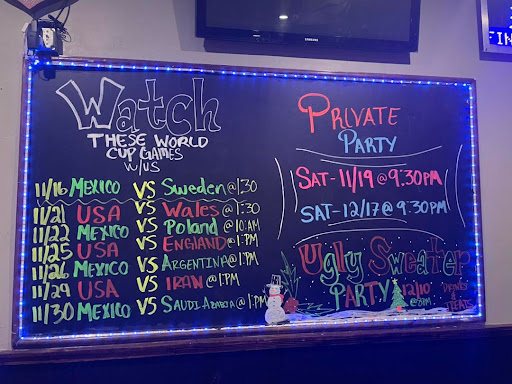 Watch
THESE WORLD
CUP GAMES
W/US
11/16 MEXICO VS Sweden @ 1:30
11/21 USA VS Wales @ 1:30
11/22 MEXICO VS Poland @ 10 AM
11/25 USA VS ENGLAND @ 1PM
11/26 MEXICO VS ARGENTINA @ 1PM
11/29 USA VS IRAN @ 1PM
11/30 MEXICO VS SAUDI ARABIA @ 1PM
PRIVATE
PARTY
SAT-11/19 @ 9:30PM
SAT-12/17 @ 9:30PM
Ugly Sweater
PARTY 12/10
@ 8PM
DRINKS
&
TREATS
SAMSUNG
FIN